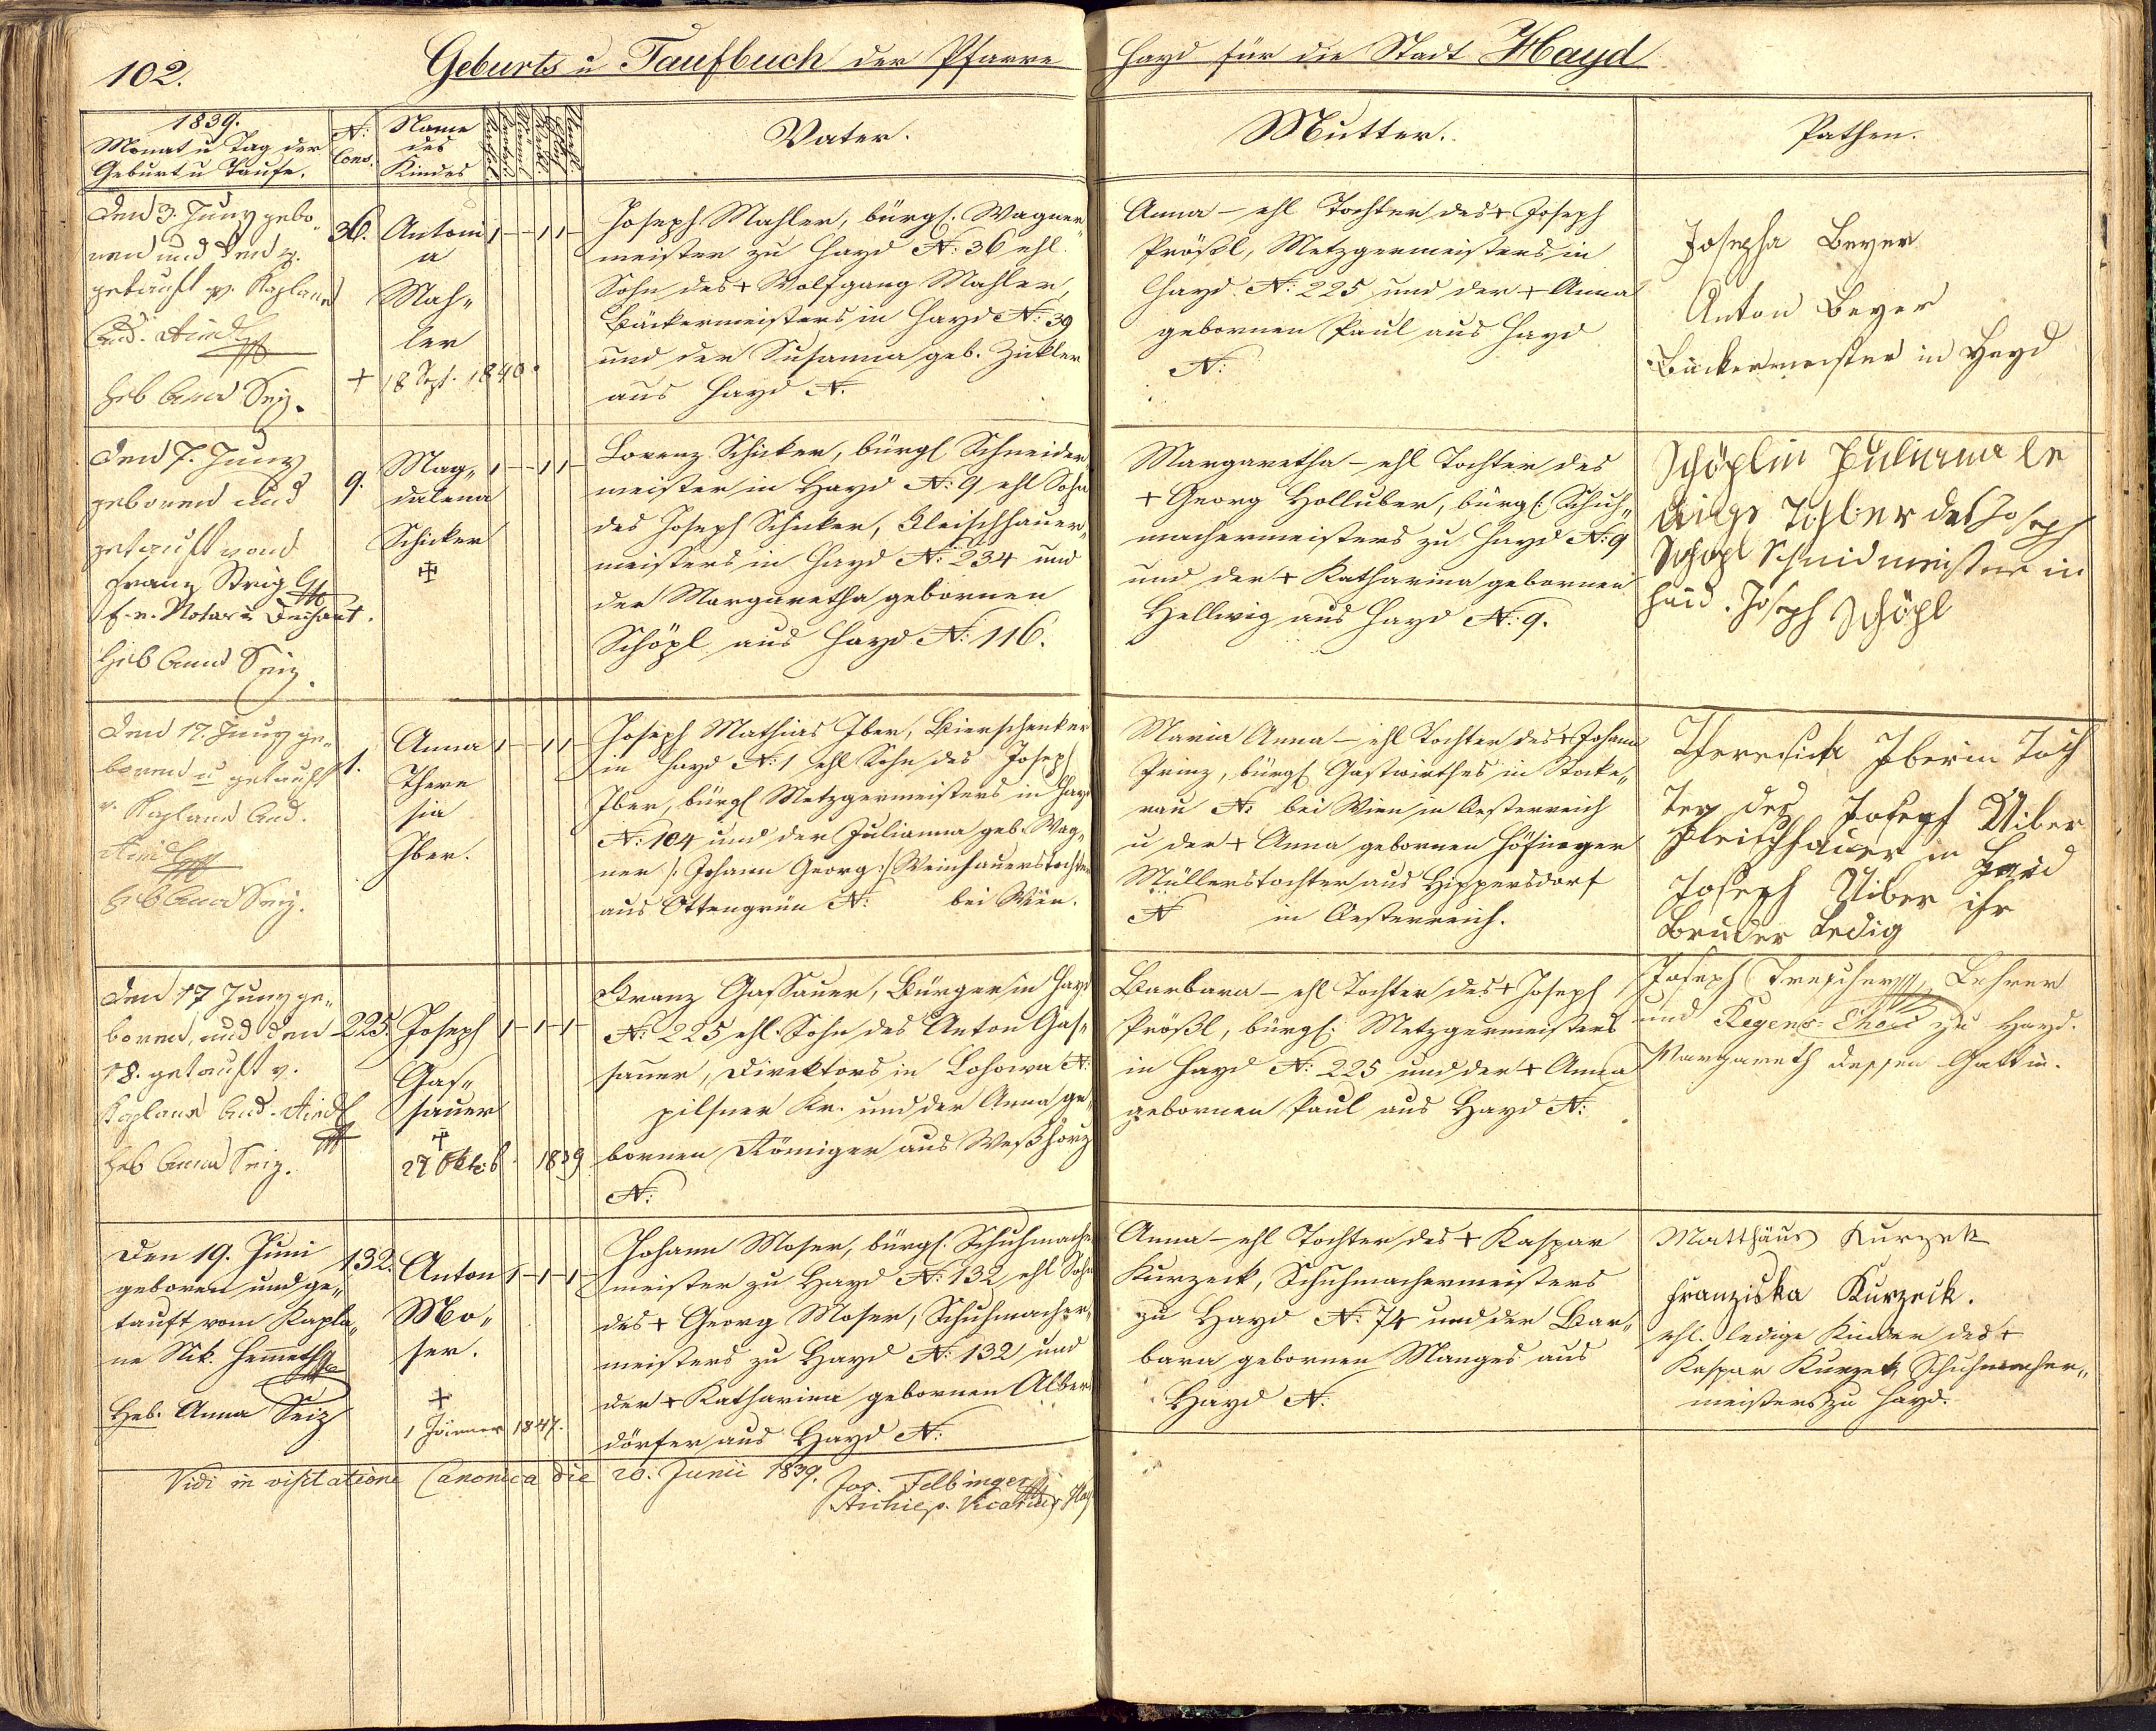 102.
Geburts u Taufbuch der Pfarre Hayd für die Stadt Hayd
1839.
Monat u Tag der
Geburt u Taufe.
N:
Cons.
Name
des
Kindes
Vater.
Mutter.
Pathen.
Den 3. Juny gebo„
ren und den 4.
getauft v. Kaplane
And.
Heb Anna Seiz.
36.
Antoni
a
Mah„
ler
+ 18 Sept. 1840.
Joseph Mahler, bürgl. Wagner„
meister zu Hayd N: 36 ehl
Sohn des + Wolfgang Mahler,
Bäckermeisters in Hayd N: 39
und der Susanna geb. Zickler
aus Hayd N.
Anna – ehl Tochter des + Joseph
Prößl, Metzgermeisters in
Hayd N: 225 und der + Anna
gebornen Paul aus Hayd
N:
Josepha Beyer
Anton Beyer
Bäckermeister in Hayd
Den 7. Juny
geboren und
getauft von
Franz Strig
f. e. Notar u Dechant.
Heb Anna Seiz.
9.
Mag„
dalena
Schicker
Lorenz Schicker, bürgl Schneider„
meister in Hayd N: 9 ehl Sohn
des Joseph Schicker, Fleischhauer„
meisters in Hayd N: 234 und
der Margaretha gebornen
Schöpl aus Hayd N: 116.
Margaretha – ehl Tochter des
+ Georg Holluber, bürgl: Schuh„
machermeisters zu Hayd N: 9
und der + Katharina gebornen
Hellwig aus Hayd N: 9.
Schöplin Juliana le
dige Tochter des Joseph
Schöpl Schmidmeister in
Haid. Joseph Schöpl
Den 17. Juny ge„
boren u getauft
v. Kaplane And.
Heb Anna Seiz.
1.
Anna
There
sia
Iber.
Joseph Mathias Iber, Bierschenker
in Hayd N: 1 ehl Sohn des Joseph
Iber, bürgl Metzgermeisters in Hayd
N: 104 und der Julianna geb. Wag„
ner /: Johann Georg :/ Weinhauerstochter
aus Ottengrün N: bei Wien.
Maria Anna – ehl Tochter des + Johann
Prinz, bürgl Gastwirthes in Stocke„
rau N: bei Wien in Oesterreich
u der + Anna gebornen Höfinger
Müllerstochter aus Hippersdorf
N in Oesterreich.
Theresia Iberin Toch
ter des Joseph Uiber
Fleischhauer in Haid
Joseph Uiber ihr
Bruder Ledig
Den 17 Juny ge„
boren, und den
18. getauft v.
Kaplane And.
Heb Anna Seiz.
225.
Joseph
Gas„
sauer
27 Oktob 1839
Franz Gassauer, Bürger in Hayd
N: 225 ehl Sohn des Anton Gas„
sauer, Direktors in Lohowa N:
pilsner Kr. und der Anna ge„
bornen Römiger aus
N:
Barbara – ehl Tochter des + Joseph
Prößl, bürgl: Metzgermeisters
in Hayd N: 225 und der + Anna
gebornen Paul aus Hayd N:
Joseph Trescher, Lehrer
und Regens-Chori zu Hayd.
Margareth dessen Gattin.
Den 19. Juni
geboren und ge„
tauft vom Kapla„
ne Nik.
Heb. Anna Seiz
132.
Anton
Mo„
ser.
+
1 Jänner 1847.
Johann Moser, bürgl. Schuhmacher
meister zu Hayd N: 132 ehl Sohn
des + Georg Moser, Schuhmacher„
meisters zu Hayd N: 132 und
der + Katharina gebornen Alber
dörfer aus Hayd N:
Anna – ehl Tochter des + Kaspar
Kurzeck, Schuhmachermeisters
zu Hayd N: 74 und der Bar„
bara gebornen Manges aus
Hayd N.
Matthäus Kurzek
Franziska Kurzeck.
ehl. ledige Kinder des +
Kaspar Kurzek, Schuhmacher„
meisters zu Hayd.
Vidi in visitatione Canonica die 20. Junii 1839.
Jos. Felbinger
Archiep. Vicarius